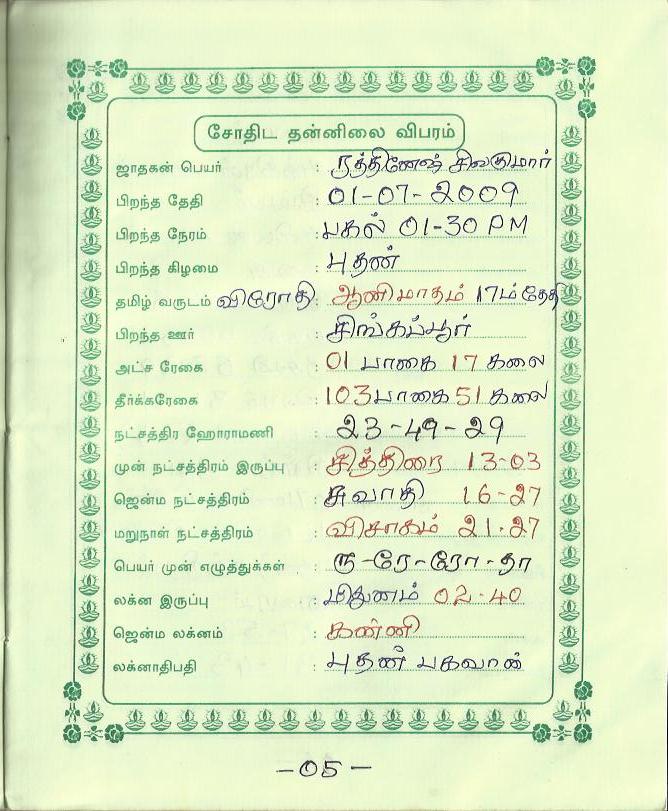 சோதிட தன்னிலை விபரம்
ஜாதகன் பெயர் : ரத்தினேஷ் சிவகுமார்
பிறந்த தேதி : 01-07-2009
பிறந்த நேரம் : பகல் 01-30 PM
பிறந்த கிழமை : புதன்
தமிழ் வருடம் விரோதி ஆனிமாதம் 17ம் தேதி
பிறந்த ஊர் : சிங்கப்பூர்
அட்ச ரேகை : 01 பாகை 17 கலை
தீர்க்கரேகை : 103 பாகை 51 கலை
நட்சத்திர ஹோராமணி : 23-49-29
முன் நட்சத்திரம் இருப்பு : சித்திரை 13-03
ஜென்ம நட்சத்திரம் : சுவாதி 16-27
மறுநாள் நட்சத்திரம் : விசாகம் 21-27
பெயர் முன் எழுத்துக்கள் : ரு-ரே-ரோ-தா
லக்ன இருப்பு : மிதுனம் 02-40
ஜென்ம லக்னம் : கன்னி
லக்னாதிபதி : புதன் பகவான்
-05-